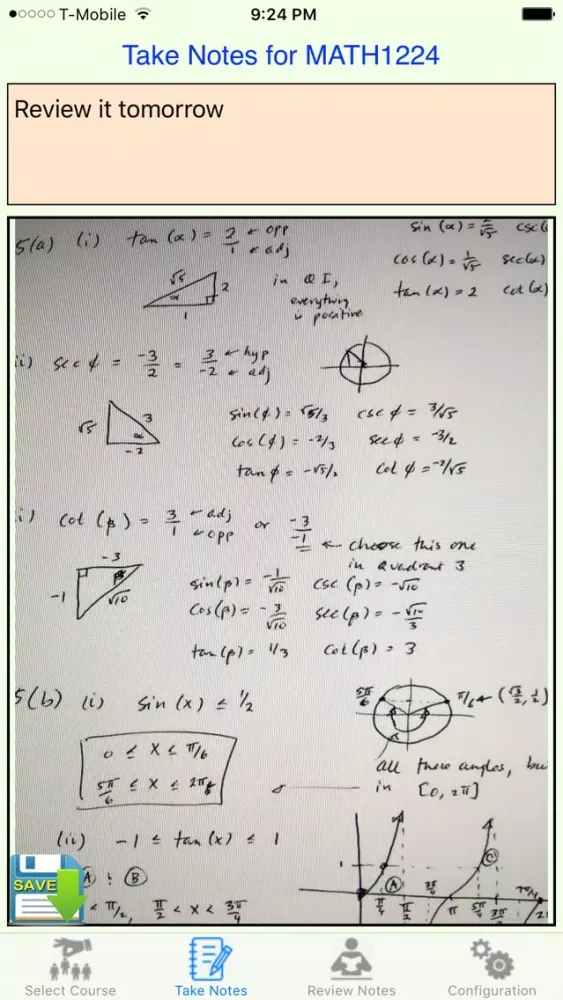 T-Mobile 9:24 PM
Take Notes for MATH1224
Review it tomorrow
5(a) (i) tan(α) = 2/1 ← opp ← adj
sin(α) = 2/√5 csc(
cos(α) = 1/√5 sec(α)
tan(α) = 2 cot(α)
√5 2 α 1
in Q I,
everything
is positive
ii) sec ϕ = -3/2 = 3/-2 ← hyp ← adj
√5 3 α -2
sin(ϕ) = √5/3 csc ϕ = 3/√5
cos(ϕ) = -2/3 sec ϕ = -3/2
tan ϕ = -√5/2 cot ϕ = -2/√5
i) cot(β) = 3/1 ← adj ← opp or -3/-1 ← choose this one
in Quadrant 3
-3 β -1 √10
sin(β) = -1/√10 csc(β) = -√10
cos(β) = -3/√10 sec(β) = -√10/3
tan(β) = 1/3 cot(β) = 3
5(b) (i) sin(x) ≤ 1/2
5π/6 π/6 ← (√3/2, 1/2)
0 ≤ x ≤ π/6
5π/6 ≤ x ≤ 2π
all these angles, but
in [0, 2π]
(ii) -1 ≤ tan(x) ≤ 1
A : B
< π/2, π/2 < x < 3π/4
1 A π/4 π/2 3π/4 π 5π/4 3π/2 7π/4 2
SAVE
Select Course
Take Notes
Review Notes
Configuration